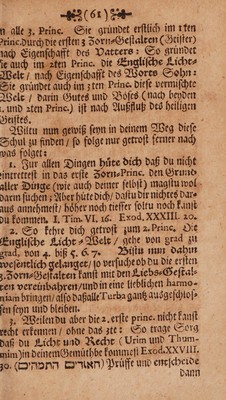 (61)
in alle 3. Princ. Sie gründet erstlich im 1ten
Princ. durch die ersten 3 Zorn-Gestalten (Geister)
nach Eigenschafft des Vatters: So gründet
sie auch im 2ten Princ. die Englische Licht-
Welt / nach Eigenschafft des Worts Sohn:
Sie gründet auch im 3ten Princ. diese vermischte
Welt / darin Gutes und Böses (nach beyden
1. und 2ten Princ.) ist nach Außfluß des heiligen
Geistes.
Wiltu nun gewiß seyn in deinem Weg diese
Schul zu finden / so folge nur getrost ferner nach
was folget:
1. Für allen Dingen hüte dich daß du nicht
eintrettest in das erste Zorn-Princ. den Grund
aller Dinge (wie auch deiner selbst) magstu wol
darin suchen; Aber hüte dich / daß du dir nichts dar-
aus annehmest / höher noch tieffer soltu noch kanst
du kommen. I. Tim. VI. 16. Exod. XXXIII. 20.
2. So kehre dich getrost zum 2. Princ. Die
Englische Licht-Welt / gehe von grad zu
grad, von 4. biß 5. 6. 7. Bistu nun dahin
wesentlich gelanget / so versuche ob du die ersten
3. Zorn-Gestalten kanst mit den Liebs-Gestal-
ten vereinbahren / und in eine lieblichen harmo-
niam bringen / also daß alle Turba gantz ausgeschlos-
sen seyn und bleiben.
3. Weilen du aber die 2. erste princ. nicht kanst
recht erkennen / ohne das 3te: So trage Sorg
daß du Licht und Recht (Urim und Thum-
mim) in deinem Gemüthbe kommest Exod. XXVIII.
30. (האורים התמהים) Prüffe und entscheide
dann